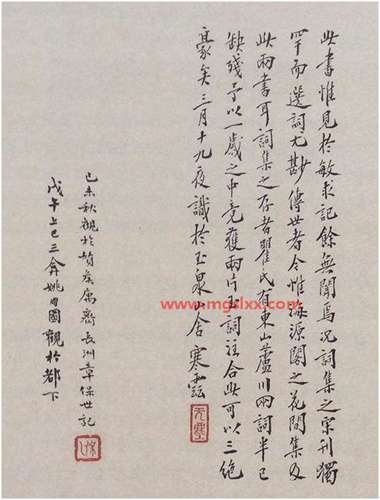 此書惟見於敏求記餘無聞焉況詞集之宋刊獨
罕而選詞尤尠傳世者今惟海源閣之花間集及
此兩書耳詞集之存者瞿氏有東山蘆川兩詞半已
缺殘予以一歲之中竟獲兩片玉詞註合此可以三絕
豪矣三月十九夜識於玉泉山舍寒雲
己未秋觀於贊矦寓齋長洲章保世記
戊午上巳三弇姚朋圖觀於都下
www.mgslxx.com